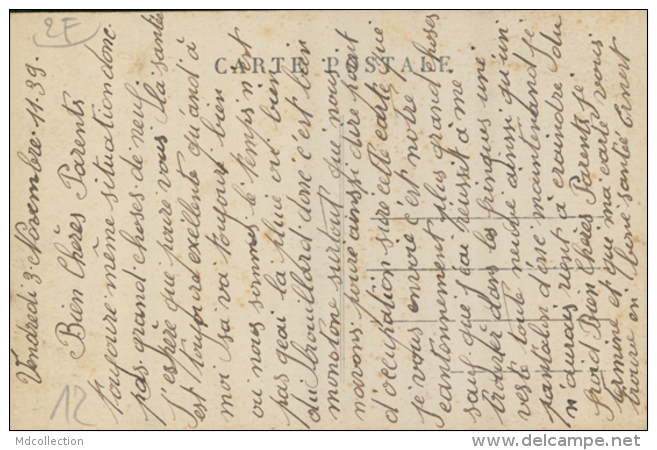 2F
CARTE POSTALE
Vendredi 3 Novembre. 11.39.
Bien Chères Parents
toujoure même situation donc
pas grand choses de neuf
j'espère que pour vous la santé
est toujour excellente quand à
moi sa va toujour bien
ou nous sommes le temps n'est
pas geai la pluie ou bien
du brouillard donc c'est bien
monotone surtout que nous
navons pour ainssi dire point
d'occupation sure cette carte que
je vous envoie c'est notre
cantonnement plus grand choses
sauf que j'ai réussit à me
trouver dans les fringues une
veste toute neuve ainssi qu'un
pantalon donc maintenand je
n'aurais rient à craindre du
froid Bien Chères Parents je
termine et que ma carte vous
trouve en bone santé Ernest
12
Mdcollection
www.delcampe.net